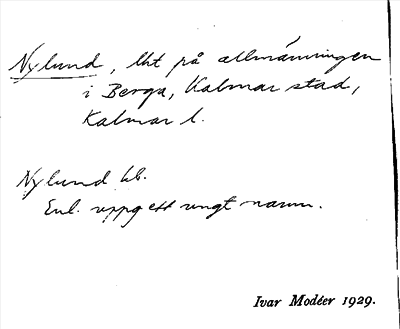 Nylund, lht på allmänningen
i Berga, Kalmar stad,
Kalmar l.
Nylund lh.
Enl. uppg ett ungt namn.
Ivar Modéer 1929.